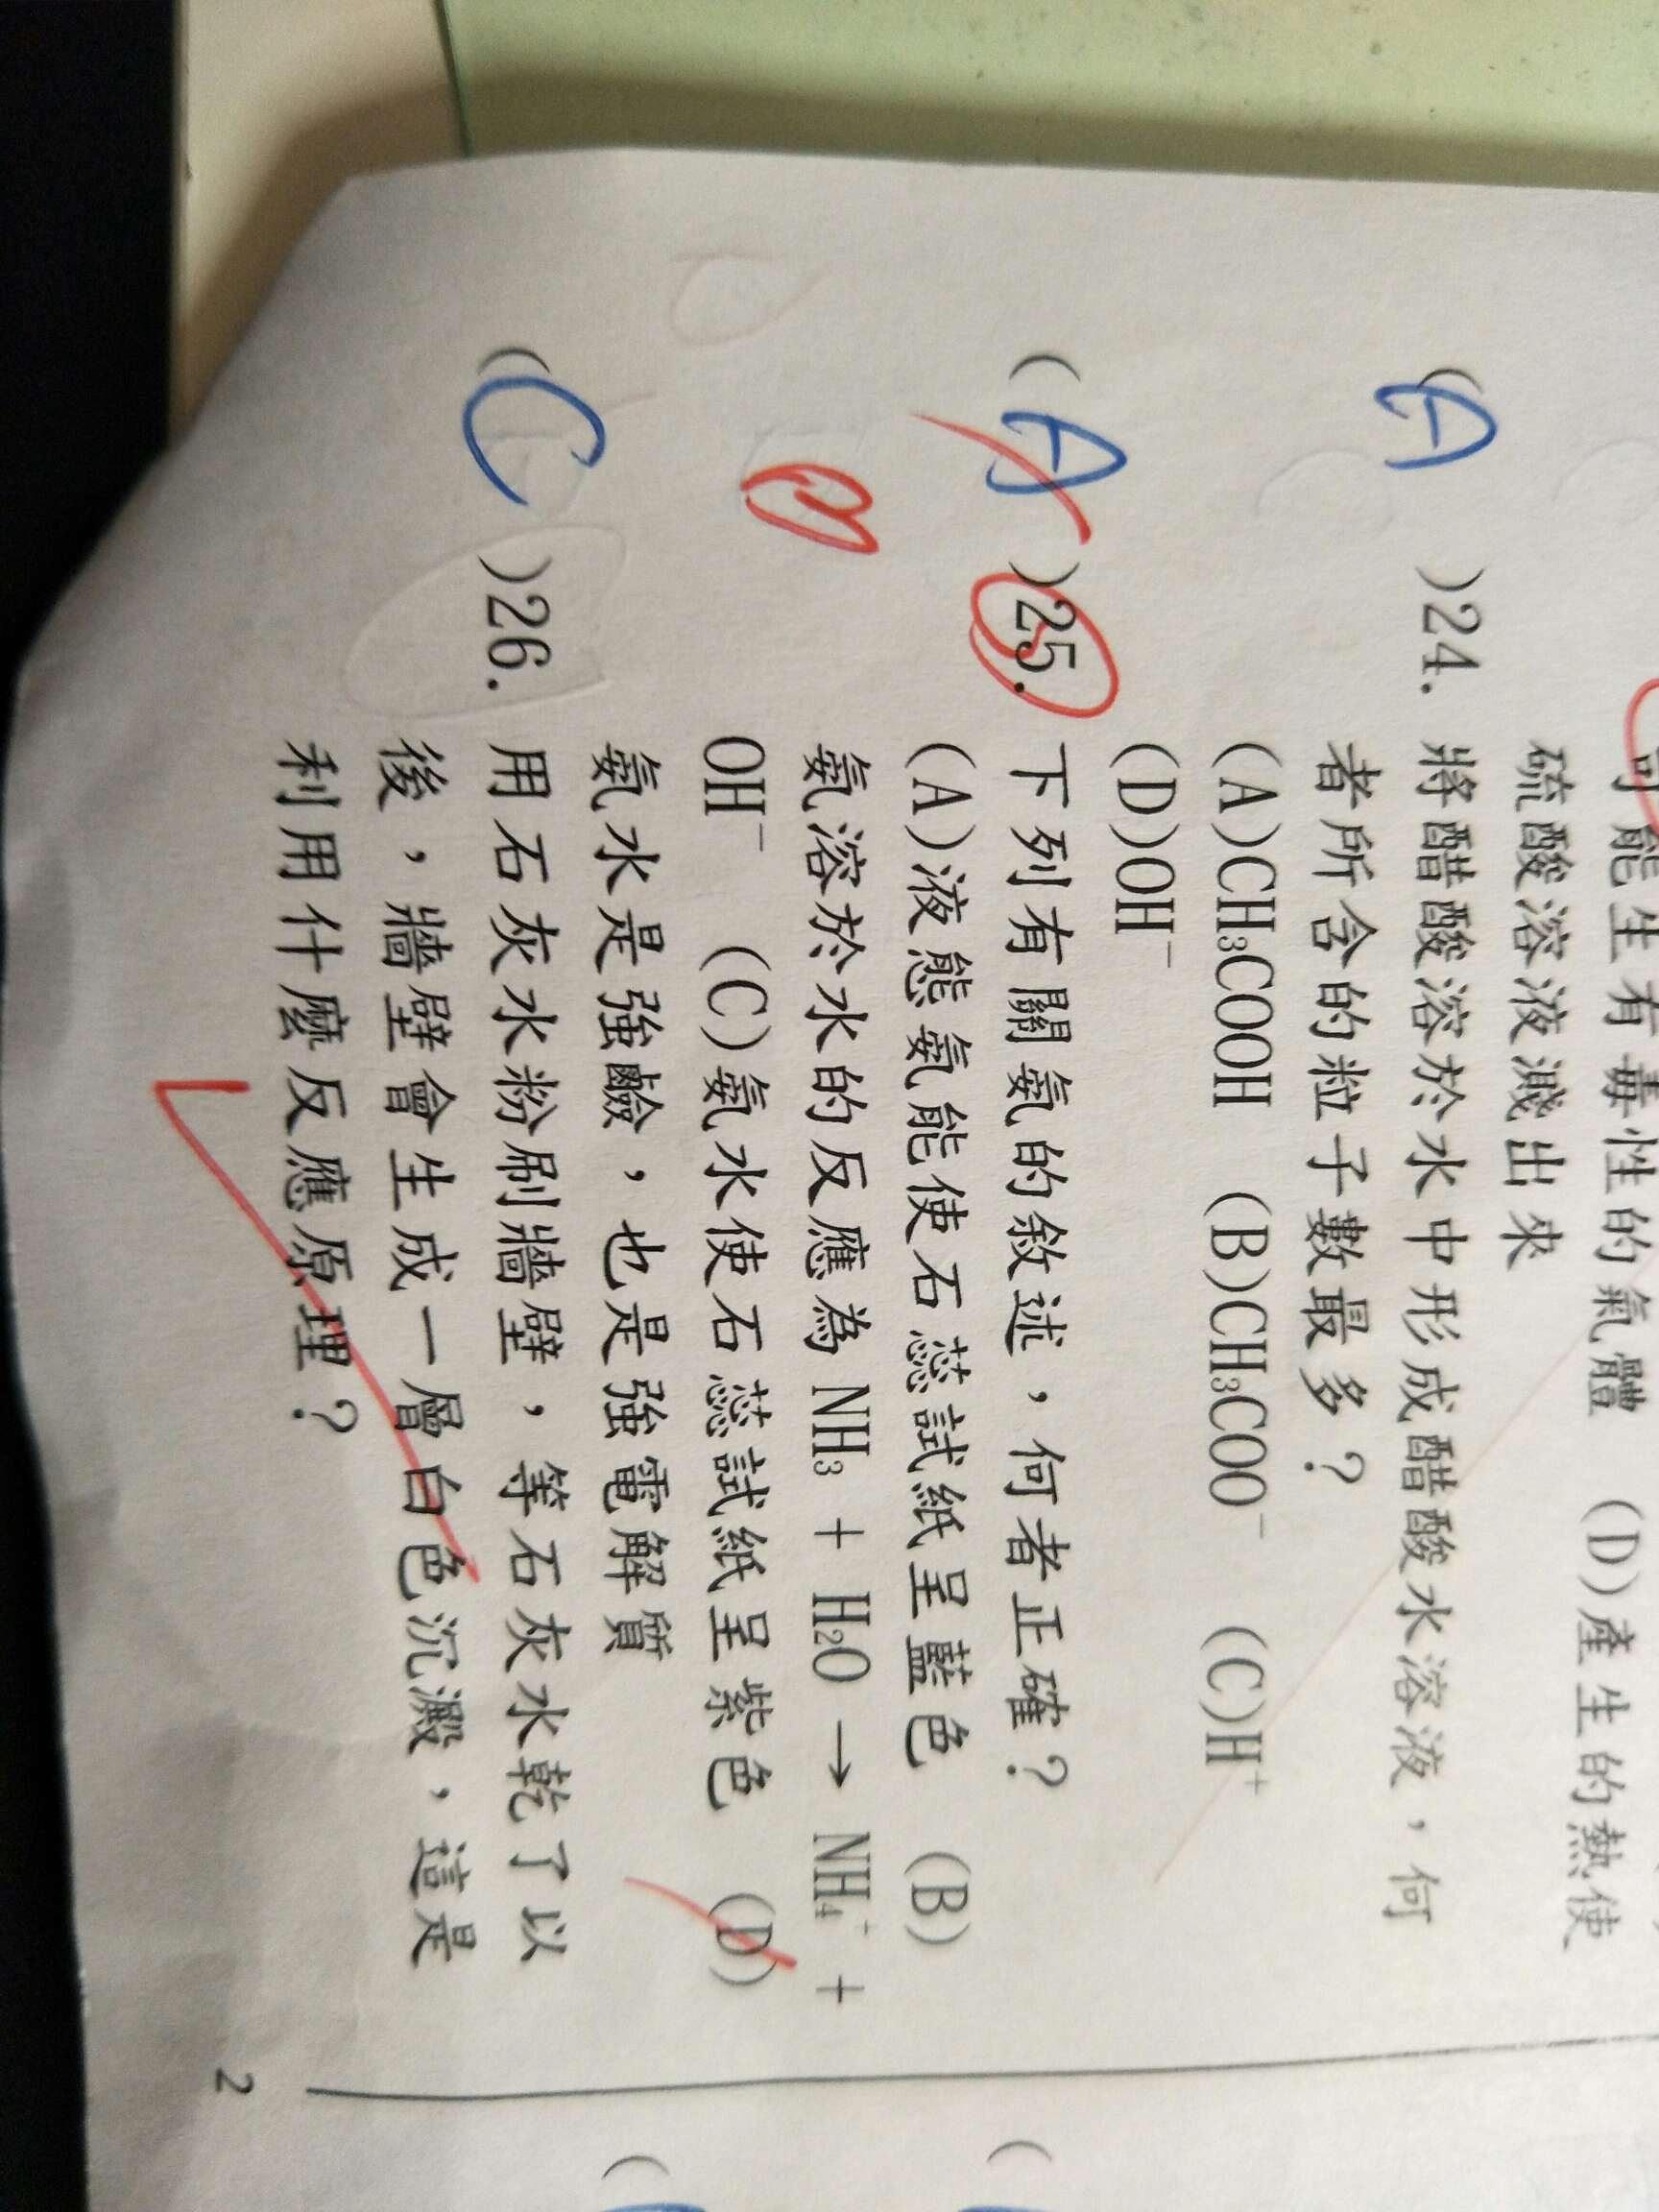 可能生有毒性的氣體 (D)產生的熱使
硫酸溶液濺出來
(A)24. 將醋酸溶於水中形成醋酸水溶液，何
者所含的粒子數最多？
(A)CH₃COOH (B)CH₃COO⁻ (C)H⁺
(D)OH⁻
(A)25. 下列有關氨的敘述，何者正確？
(A)液態氨能使石蕊試紙呈藍色 (B)
B 氨溶於水的反應為 NH₃ + H₂O → NH₄⁺ +
OH⁻ (C)氨水使石蕊試紙呈紫色 (D)
氨水是強鹼，也是強電解質
(C)26. 用石灰水粉刷牆壁，等石灰水乾了以
後，牆壁會生成一層白色沉澱，這是
利用什麼反應原理？
2